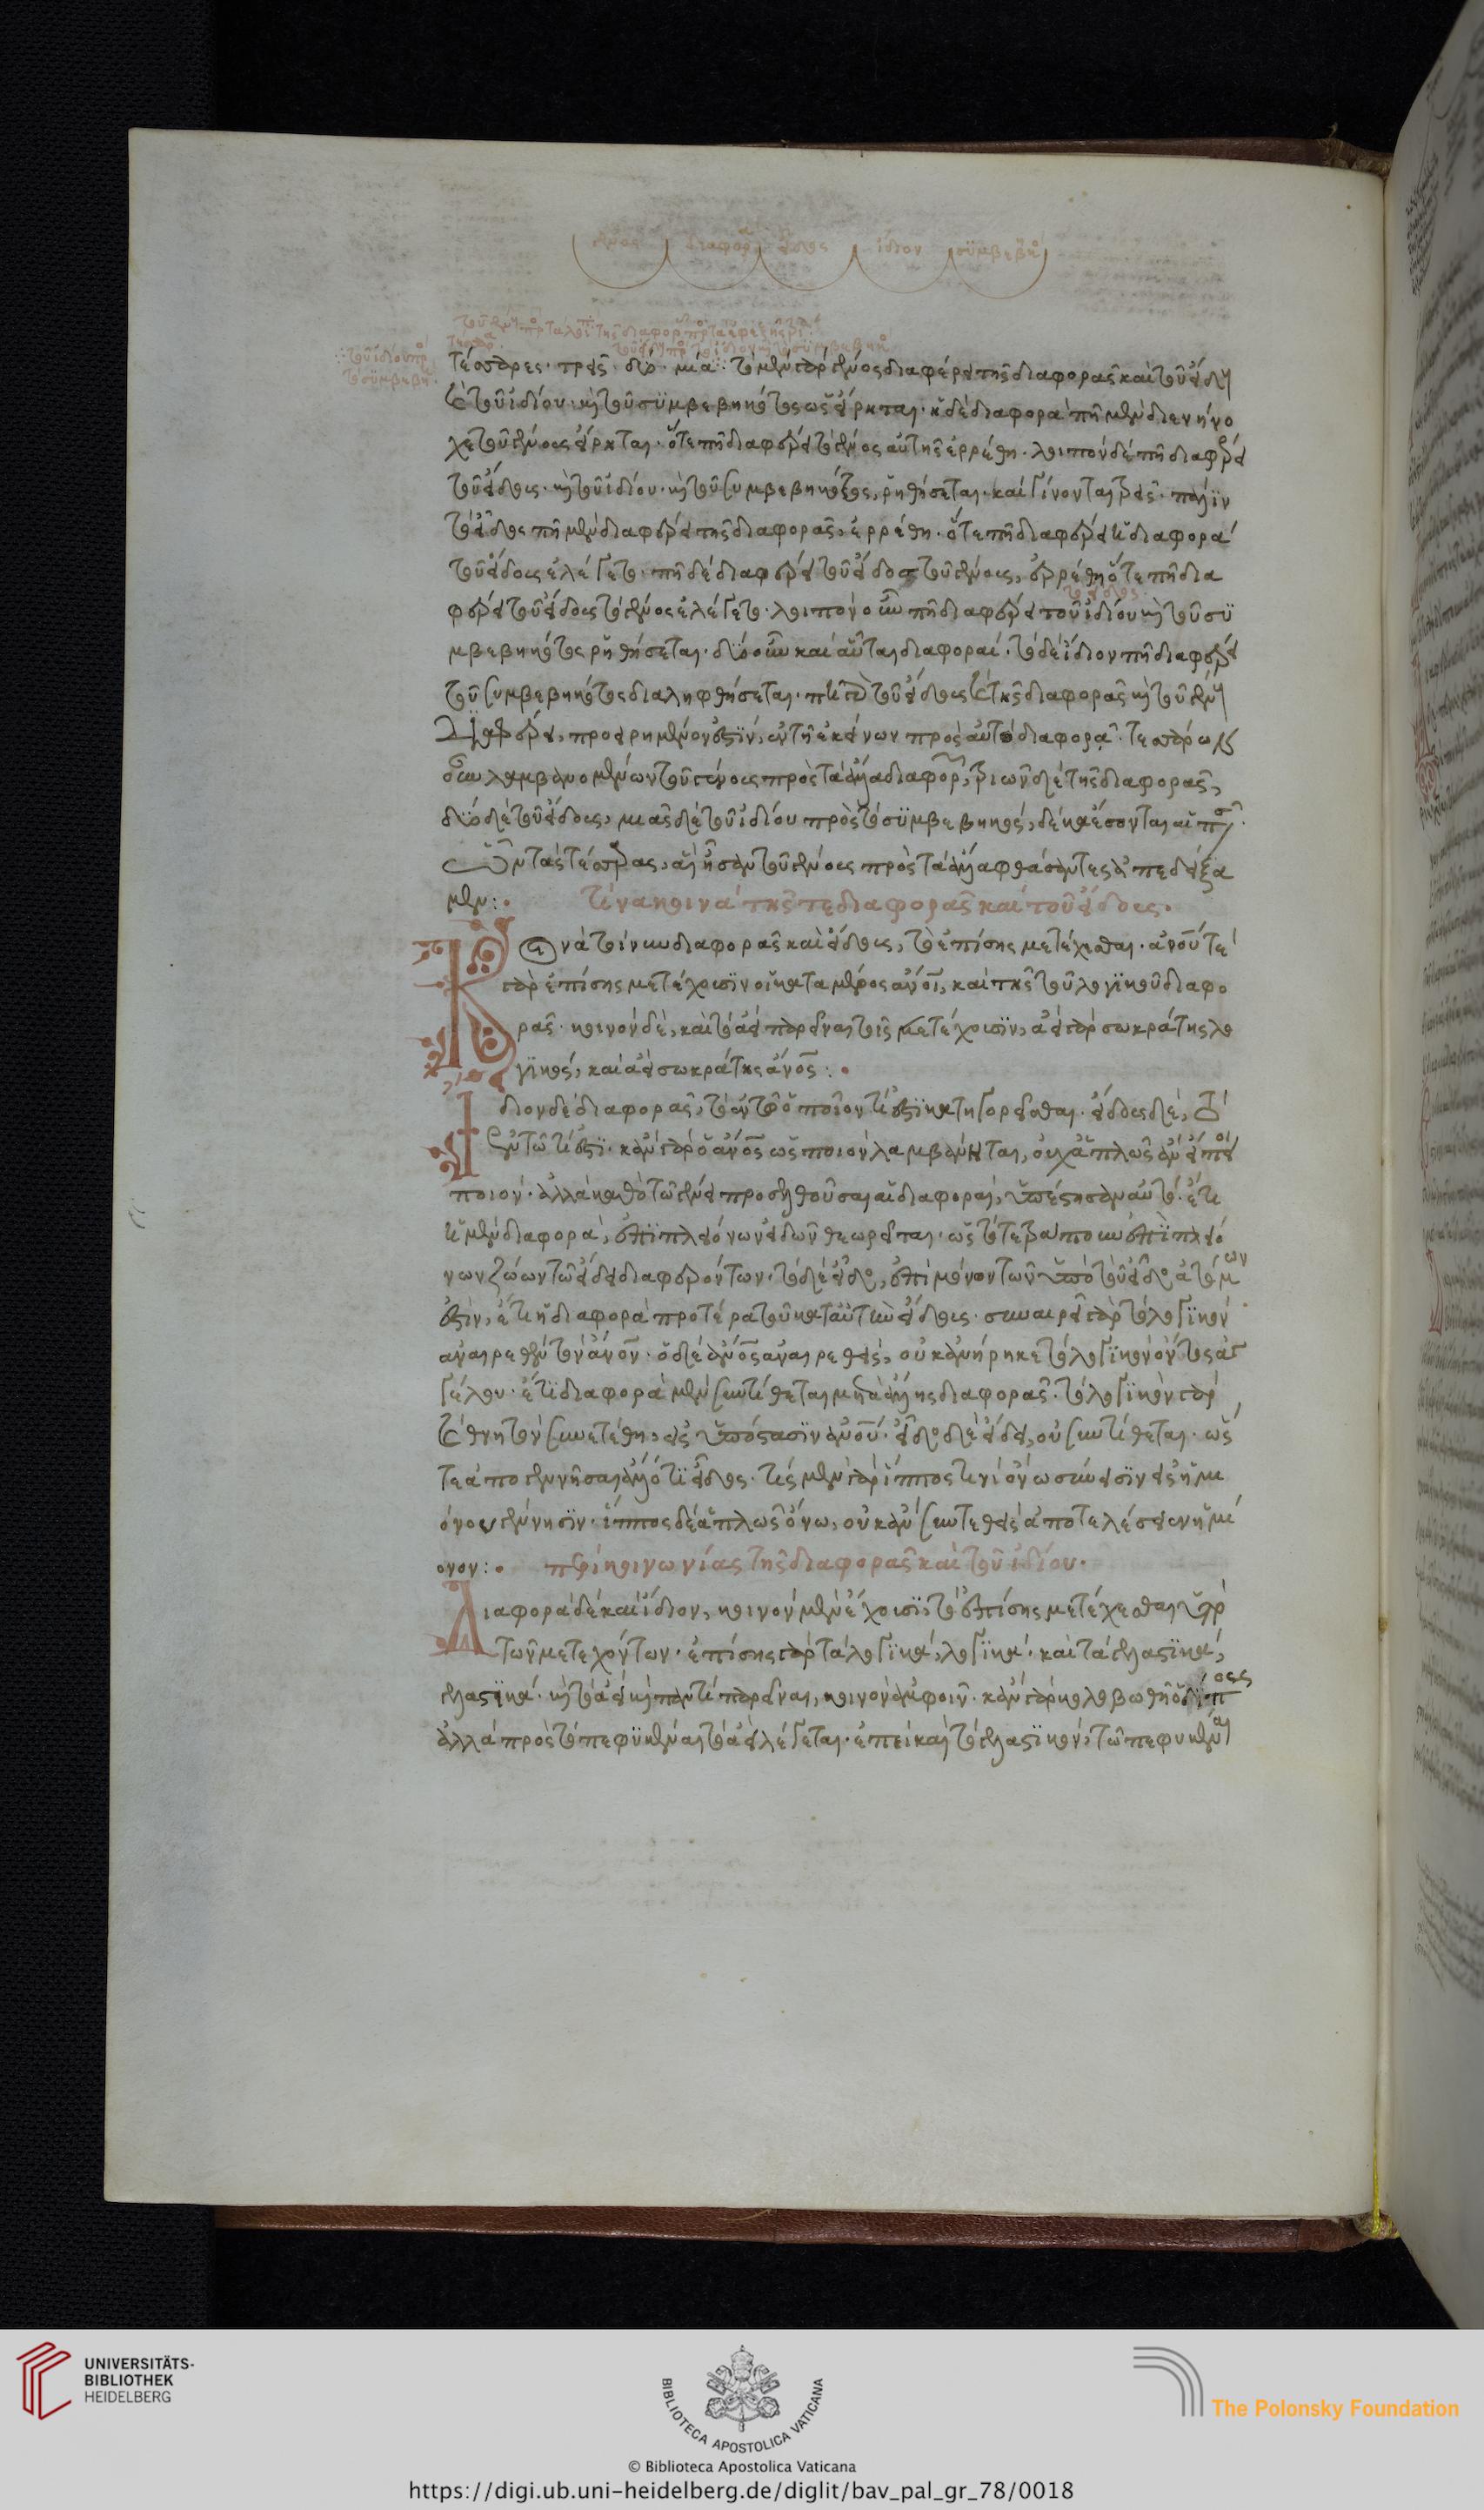 γένος διαφορ εἶδος ἴδιον συμβεβηκ
τοῦ ἰδίου πρ
τὸ συμβεβη
τέσσαρες· τρεῖς· δύο· μία· τὸ μὲν γὰρ γένος διαφέρει τῆς διαφορᾶς καὶ τοῦ εἴδους
καὶ τοῦ ἰδίου· καὶ τοῦ συμβεβηκότος ὡς εἴρηται· ἡ δὲ διαφορὰ πῆ μὲν διενήνο
χε τοῦ γένους εἴρηται· ὅτε πῆ διαφέρει τὸ γένος αὐτῆς ἐρρέθη· λοιπὸν δὲ πῆ διαφέρει
τοῦ εἴδους· καὶ τοῦ ἰδίου· καὶ τοῦ συμβεβηκότος, ῥηθήσεται· καὶ γίνονται τρεῖς· πάλιν
τὸ εἶδος πῆ μὲν διαφέρει τῆς διαφορᾶς, ἐρρέθη· ὅτε πῆ διαφέρει ἡ διαφορὰ
τοῦ εἴδους ἐλέγετο· πῆ δὲ διαφέρει τὸ εἶδος τοῦ γένους, ἐρρέθη ὅτε πῆ δια
φέρει τοῦ εἴδους τὸ γένος ἐλέγετο· λοιπὸν οὖν πῆ διαφέρει τὸ εἶδος τοῦ ἰδίου καὶ τοῦ συ
μβεβηκότος ῥηθήσεται· δύο οὖν καὶ αὗται διαφοραί· τὸ δὲ ἴδιον πῆ διαφέρει
τοῦ συμβεβηκότος διαληφθήσεται· πῆ γὰρ τοῦ εἴδους καὶ τῆς διαφορᾶς καὶ τοῦ γένους
διαφέρει, προειρημένον ἐστὶν, ἐν τῇ ἐκείνων πρὸς αὐτὸ διαφορᾷ· τεσσάρων
οὖν λαμβανομένων τοῦ γένους πρὸς τὰ ἄλλα διαφορῶν, τριῶν δὲ τῆς διαφορᾶς,
δύο δὲ τοῦ εἴδους, μιᾶς δὲ τοῦ ἰδίου πρὸς τὸ συμβεβηκὸς, δέκα ἔσονται αἱ πᾶσαι·
ὧν τὰς τέσσαρας, αἳ ἦσαν τοῦ γένους πρὸς τὰ ἄλλα φθάσαντες ἀπεδείξα
μεν:·
τίνα κοινὰ τῆς τε διαφορᾶς καὶ τοῦ εἴδους·
Κοινὰ τοίνυν διαφορᾶς καὶ εἴδους, τὸ ἐπίσης μετέχεσθαι· ἀνοῦ τε
γὰρ ἐπίσης μετέχουσιν οἱ κατὰ μέρος ἄνοι, καὶ τῆς τοῦ λογικοῦ διαφο
ρᾶς· κοινὸν δὲ, καὶ τὸ ἀεὶ παρεῖναι τοῖς μετέχουσιν, ἀεὶ γὰρ σωκράτης λο
γικὸς, καὶ ἀεὶ σωκράτης ἄνος:·
Ἴδιον δὲ διαφορᾶς, τὸ ἐν τῷ ὁποῖον τί ἐστι κατηγορεῖσθαι· εἴδους δὲ, τὸ
ἐν τῷ τί ἐστι· κἂν γὰρ ὁ ἄνος ὡς ποιὸν λαμβάνηται, οὐχ ἁπλῶς ἂν εἴη
ποιὸν· ἀλλὰ καθὸ τῷ γένει προσελθοῦσαι αἱ διαφοραὶ, ὑπέστησαν αὐτό· ἔτι
ἡ μὲν διαφορὰ, ἐπὶ πλειόνων εἰδῶν θεωρεῖται· ὡς τὸ τετράπουν ἐπὶ πλειό
νων ζώων τῷ εἴδει διαφερόντων· τὸ δὲ εἶδος, ἐπὶ μόνων τῶν ὑπὸ τὸ εἶδος ἀτόμων
ἐστίν, ἔτι ἡ διαφορὰ προτέρα τοῦ κατ᾽ αὐτὴν εἴδους· συναιρεῖ γὰρ τὸ λογικὸν
ἀναιρεθὲν τὸν ἄνον· ὁ δὲ ἄνος ἀναιρεθεὶς, οὐκ ἀνῄρηκε τὸ λογικὸν ὄντος ἀγ
γέλου· ἔτι διαφορὰ μὲν συντίθεται μετὰ ἄλλης διαφορᾶς· τὸ λογικὸν γὰρ
καὶ τὸ θνητὸν συνετέθη, εἰς ὑπόστασιν ἀνοῦ· εἶδος δὲ εἴδει, οὐ συντίθεται· ὥς
τε ἀπογεννῆσαι ἄλλό τι εἶδος· τὶς μὲν γὰρ ἵππος τινὶ ὄνῳ σύνεισιν εἰς ἡμι
όνου γέννησιν· ἵππος δὲ ἁπλῶς ὄνῳ, οὐκ ἂν συντεθεὶς ἀποτελέσειεν ἡμί
ονον:·  περὶ κοινωνίας τῆς διαφορᾶς καὶ τοῦ ἰδίου·
Διαφορὰ δὲ καὶ ἴδιον, κοινὸν μὲν ἔχουσι, τὸ ἐπίσης μετέχεσθαι ὑπὸ
τῶν μετεχόντων· ἐπίσης γὰρ τὰ λογικὰ, λογικά· καὶ τὰ γελαστικὰ,
γελαστικά· καὶ τὸ ἀεὶ καὶ παντὶ παρεῖναι, κοινὸν ἀμφοῖν· κἂν γὰρ κολοβωθῇ ὁ δίπους
ἀλλὰ πρὸς τὸ πεφυκέναι τὸ ἀεὶ λέγεται· ἐπεὶ καὶ τὸ γελαστικὸν, τῷ πεφυκέναι
UNIVERSITÄTS-
BIBLIOTHEK
HEIDELBERG
BIBLIOTECA APOSTOLICA VATICANA
The Polonsky Foundation
© Biblioteca Apostolica Vaticana
https://digi.ub.uni-heidelberg.de/diglit/bav_pal_gr_78/0018